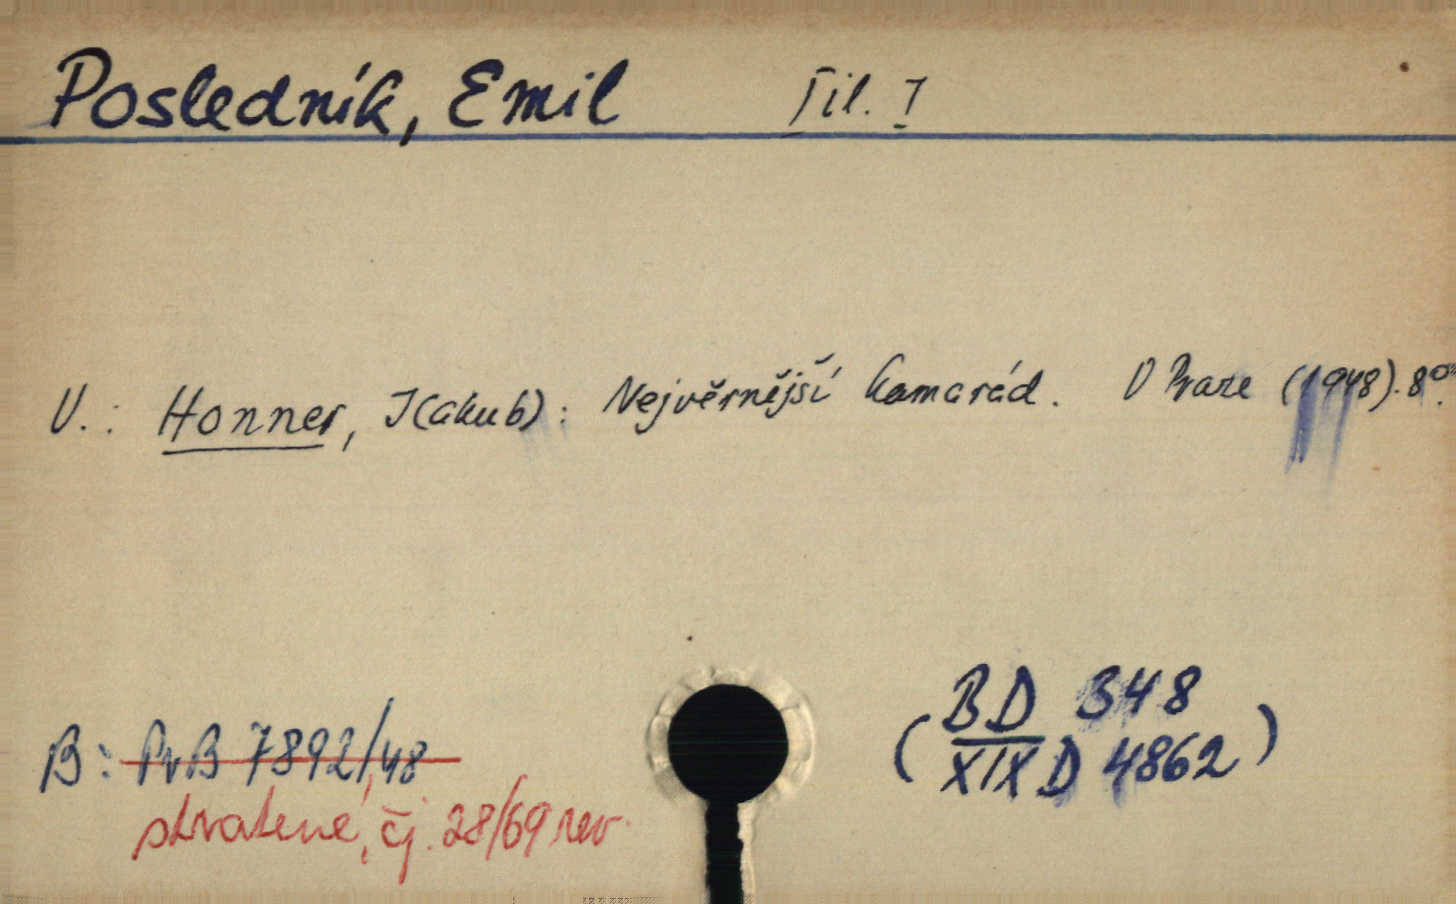 Posledník, Emil Fil. I
V.: Honner, J(akub): Nejvěrnější kamarád. V Praze (1948). 8°.
BD 348
B: PvB 7892/48 ( XIX D 4862 )
stratené, čj. 28/69 rev.